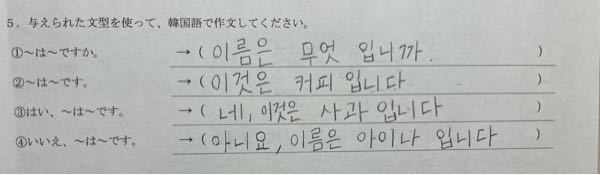 5．与えられた文型を使って、韓国語で作文してください。
①～は～ですか。 →（ 이름은 무엇 입니까. ）
②～は～です。 →（ 이것은 커피 입니다 ）
③はい、～は～です。 →（ 네, 이것은 사과 입니다 ）
④いいえ、～は～です。 →（ 아니요, 이름은 아이나 입니다 ）